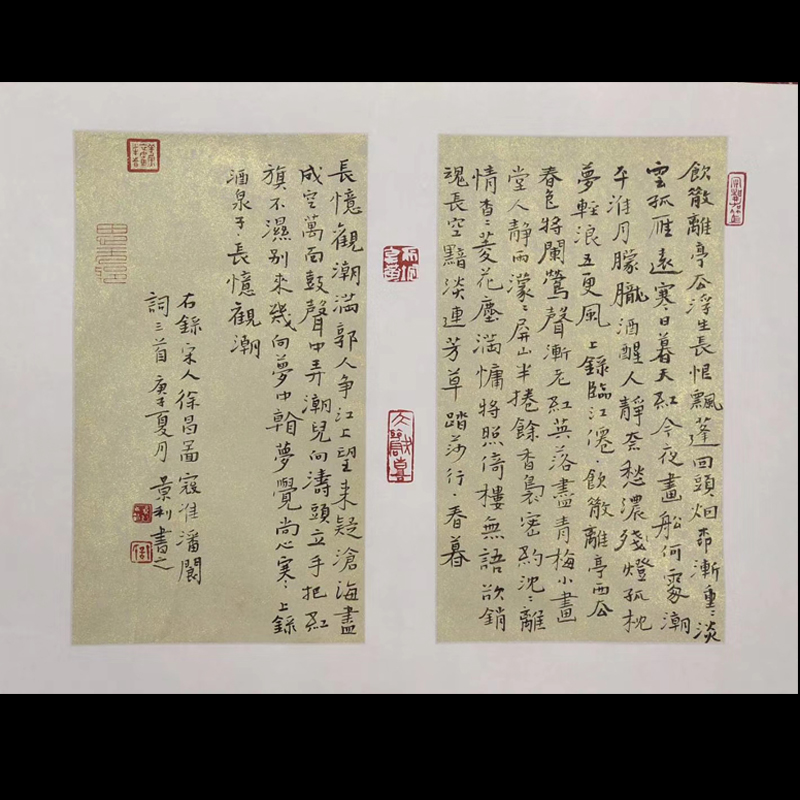 飲散離亭去浮生長恨飄蓬回頭烟柳漸重〻淡
雲孤雁遠寒日暮天紅今夜畫船何處潮
平淮月朦朧酒醒人靜奈愁濃殘燈孤枕
夢輕浪五更風 上錄臨江僊·飲散離亭西去
春色將闌鶯聲漸老紅英落盡青梅小畫
堂人靜雨濛〻屏山半捲餘香裊密約沈〻離
情杳〻菱花塵滿慵將照倚樓無語欲銷
魂長空黯淡連芳草 踏莎行·春暮
長憶觀潮滿郭人爭江上望來疑滄海盡
成空萬面鼓聲中弄潮兒向濤頭立手把紅
旗不濕別來幾向夢中看夢覺尚心寒〻上錄
酒泉子·長憶觀潮
右錄宋人徐昌圖寇準潘閬
詞三首 庚子夏月 景利書之